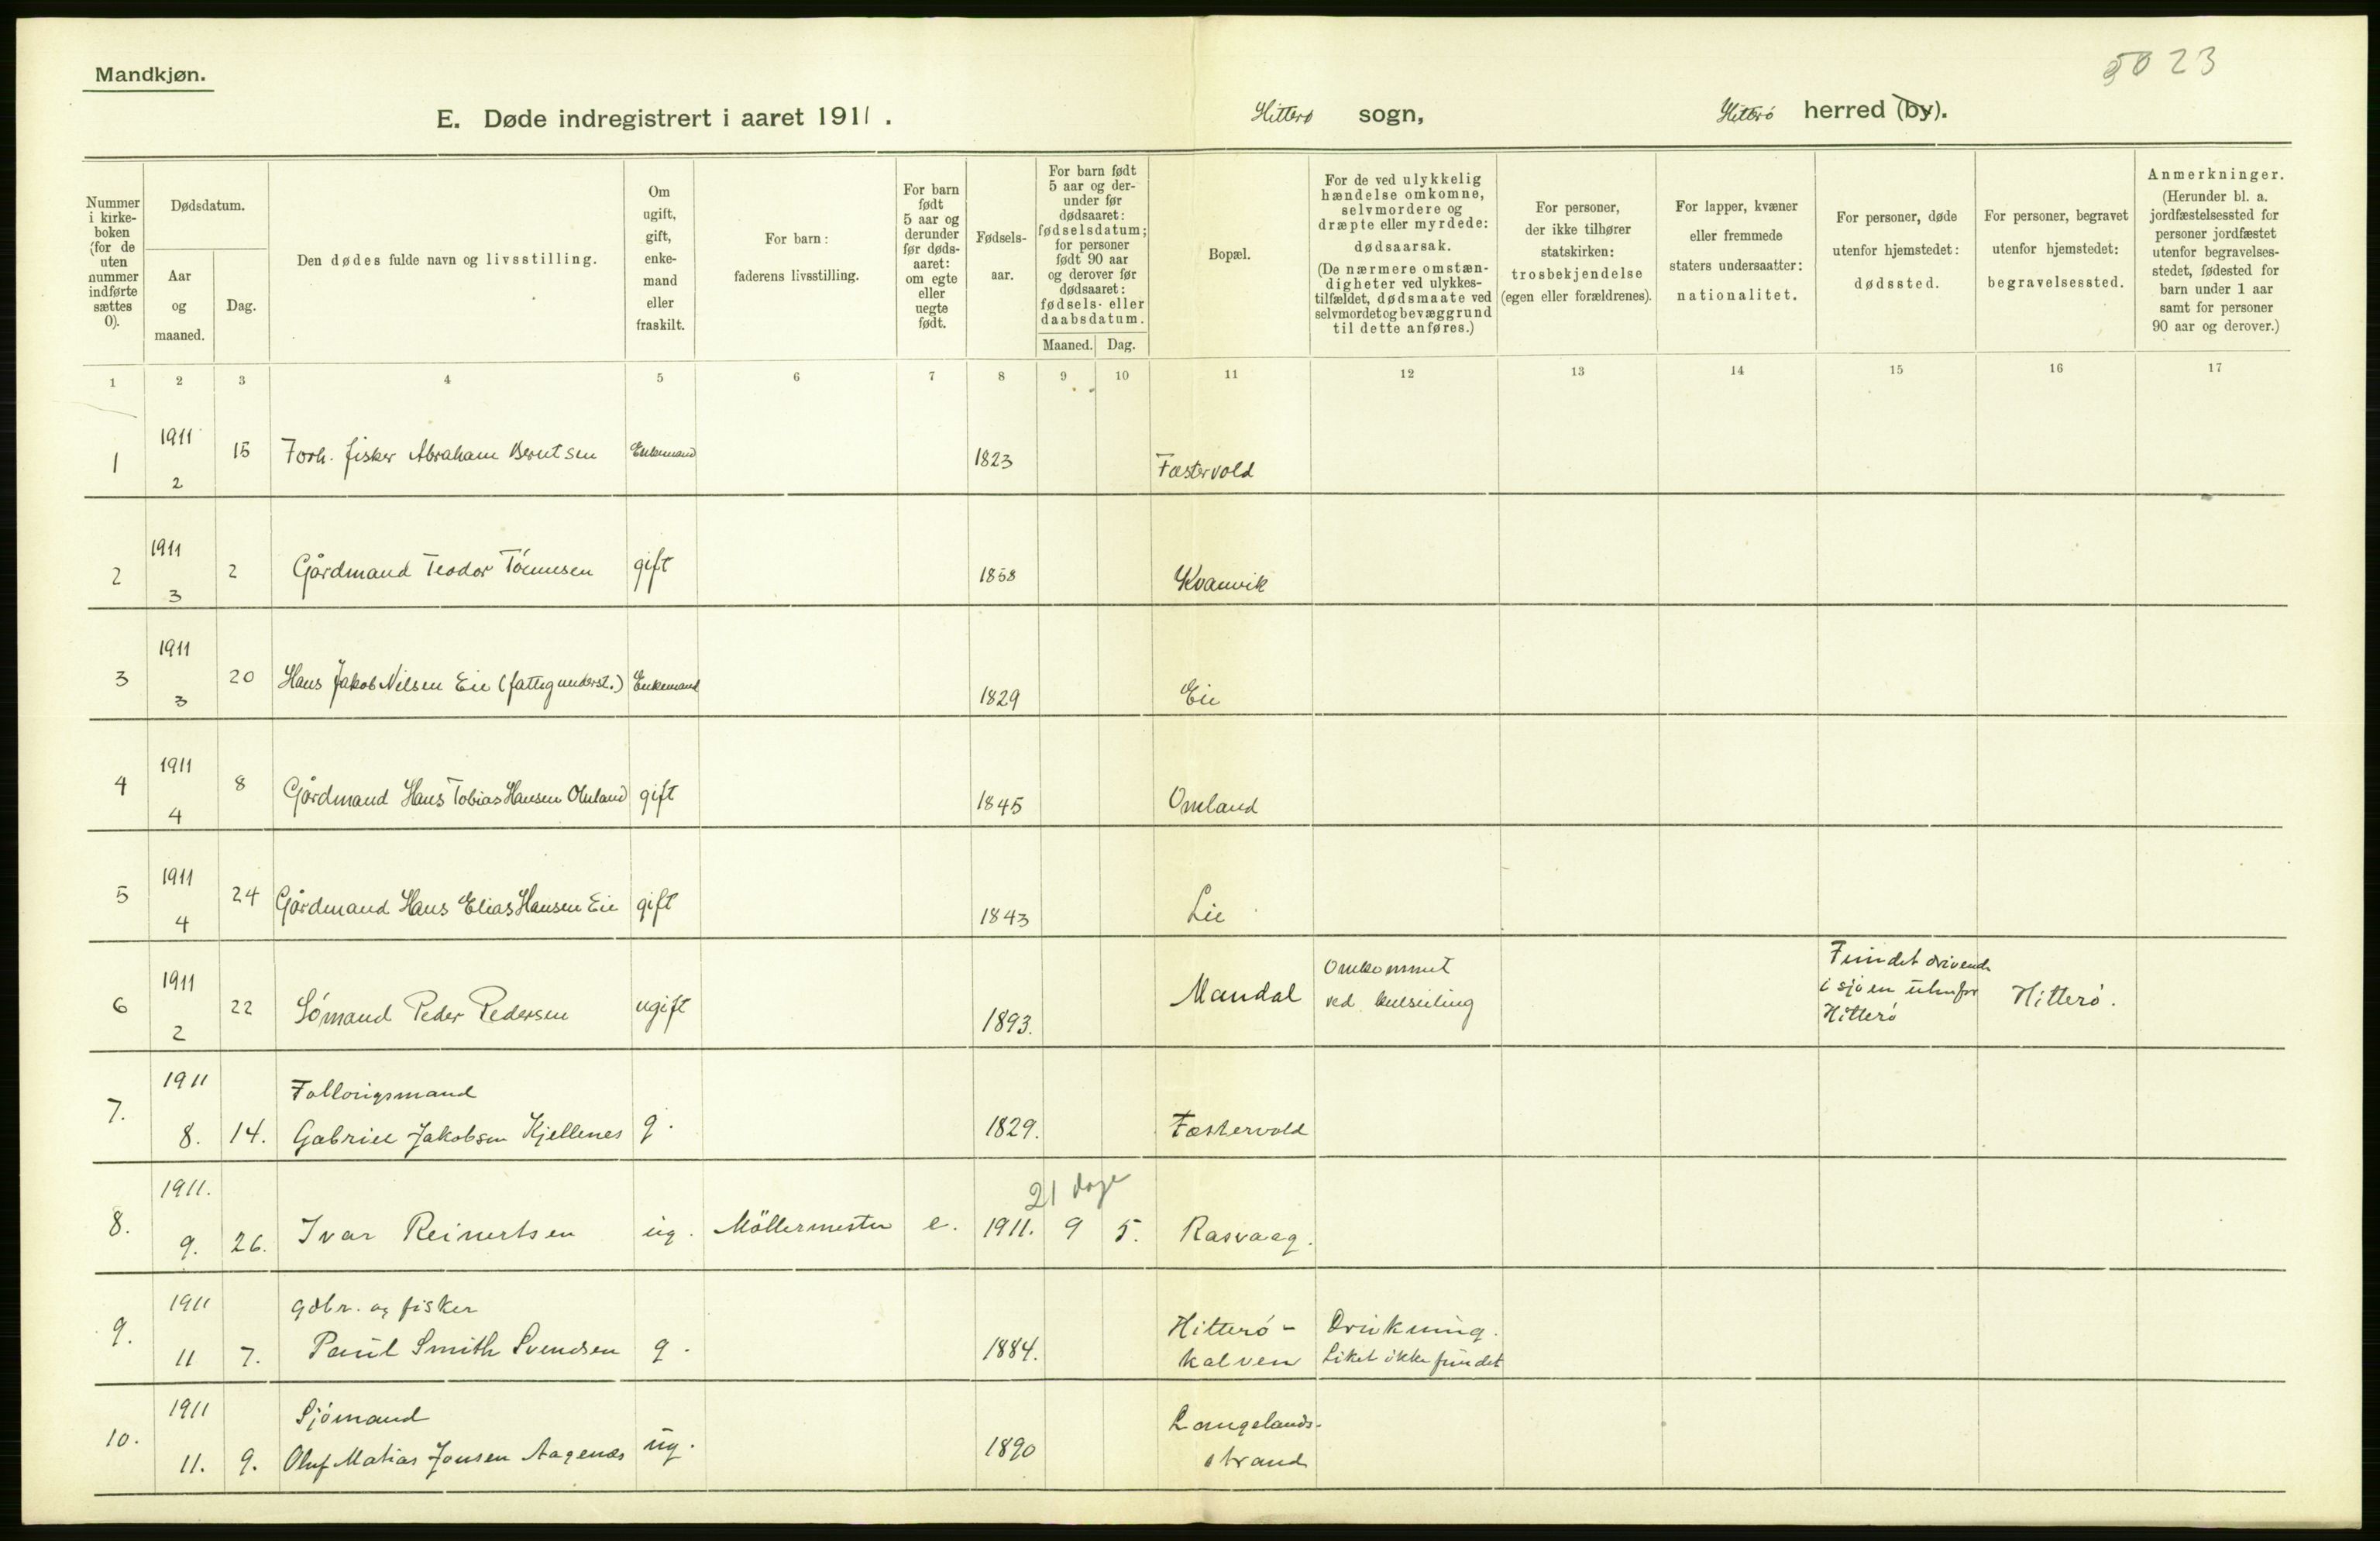 Mandkjøn.
5023
E. Døde indregistrert i aaret 1911.
Hitterø sogn,
Hitterø herred (by).
Nummer i kirke-boken (for de uten nummer indførte sættes 0).
Dødsdatum.
Aar og maaned.
Dag.
Den dødes fulde navn og livsstilling.
Om ugift, gift, enke-mand eller fraskilt.
For barn: faderens livsstilling.
For barn født 5 aar og derunder før døds-aaret: om egte eller uegte født.
Fødsels-aar.
For barn født 5 aar og der-under før dødsaaret: fødselsdatum; for personer født 90 aar og derover før dødsaaret: fødsels- eller daabsdatum.
Maaned. Dag.
Bopæl.
For de ved ulykkelig hændelse omkomne, selvmordere og dræpte eller myrdede: dødsaarsak. (De nærmere omstæn-digheter ved ulykkes-tilfældet, dødsmaate ved selvmordet og bevæggrund til dette anføres.)
For personer, der ikke tilhører statskirken: trosbekjendelse (egen eller forældrenes).
For lapper, kvæner eller fremmede staters undersaatter: nationalitet.
For personer, døde utenfor hjemstedet: dødssted.
For personer, begravet utenfor hjemstedet: begravelsessted.
Anmerkninger. (Herunder bl. a. jordfæstelsessted for personer jordfæstet utenfor begravelses-stedet, fødested for barn under 1 aar samt for personer 90 aar og derover.)
1 2 3 4 5 6 7 8 9 10 11 12 13 14 15 16 17
1 1911 2 15 Forh. fisker Abraham Berntsen Enkemand 1823 Fæstervold
2 1911 3 2 Gårdmand Teodor Tönnesen gift 1858 Kvanvik
3 1911 3 20 Hans Jakob Nilsen Eie (fattigunderst.) Enkemand 1829 Eie
4 1911 4 8 Gårdmand Hans Tobias Hansen Omland gift 1845 Omland
5 1911 4 24 Gårdmand Hans Elias Hansen Eie gift 1843 Lie
6 1911 2 22 Sømand Peder Pedersen ugift 1893. Mandal Omkommet ved kulseiling Fundet drivende i sjøen utenfor Hitterø Hitterø.
7. 1911 8. 14. Follougsmand
Gabriel Jakobsen Kjellenes g. 1829. Fæstervold
21 dage
8. 1911. 9. 26. Ivar Reinertsen ug. Möllermester e. 1911. 9 5. Rasvaag.
9. 1911 11 7. gdbr. og fisker
Paul Smith Svendsen g. 1884. Hitterø-kalven Drukning. Liket ikke fundet
10. 1911 11. 9. Sjömand
Oluf Matias Jonsen Aagenæs ug. 1890 Langelands-strand